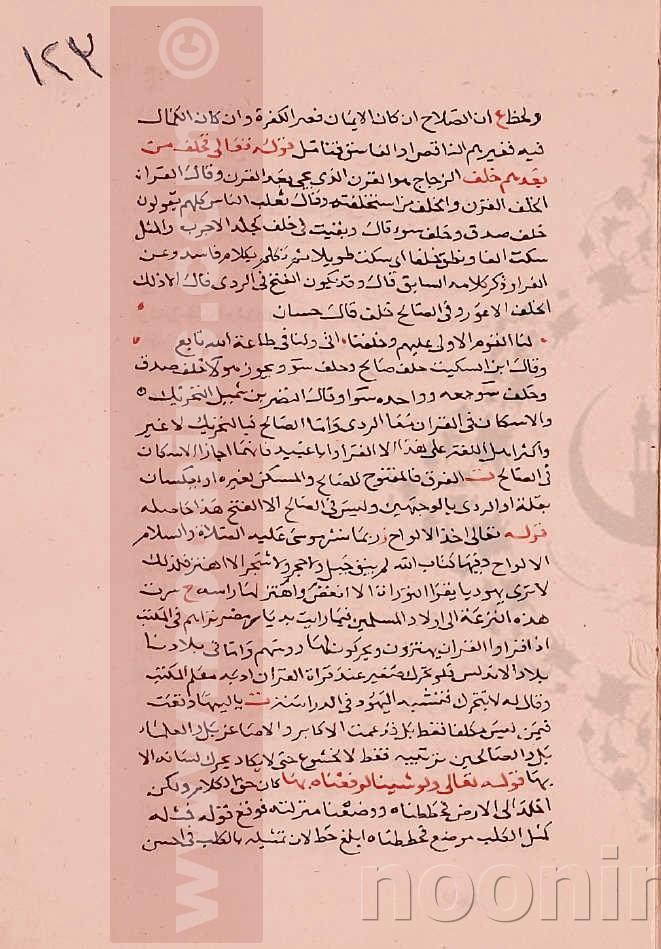 ١٢٣
ولحظ ع ان الصلاح ان كان الايمان فغير الكفرة وان كان الكمال
فيه فغيرهم الناقص او الفاسق فتأمل قوله تعالى فخلف من
بعدهم خلف الزجاج هو القرن الذي يجي بعد القرن وقال الفرا
الخلف القرن والخلف من استخلفته وقال ثعلب الناس كلهم يقولون
خلف صدق وخلف سوء قال وبقيت في خلف كجلد الاجرب والمثل
سكت الفا ونطق خلفا اي سكت طويلا ثم تكلم بكلام فاسد وعن
الفرا وذكر كلامه السابق قال وقد يكون الفتح في الردى قال الا ذلك
الخلف الاعور وفي الصالح خلف قال حسان
لنا القدم الاولى عليهم وخلفنا الاولنا في طاعة الله تابع
وقال ابن السكيت خلف صالح وخلف سو ويجوز هولا خلف صدق
وخلف سو جمعه وواحده سوا وقال النضر بن شميل التحريك
والاسكان في القرن معا الردى واما الصالح فبالتحريك لا غير
واكثر اهل اللغة على هذا الا الفرا وابا عبيد فانهما اجازا الاسكان
في الصالح ت الفرق فالمفتوح للصالح والمسكن لغيره او ينكسان
بقلة او الردى بالوجهين وليس في الصالح الا الفتح هذا حاصله
قوله تعالى اخذ الالواح ز لما نشر موسى عليه الصلاة والسلام
الالواح وفيها كتاب الله لم يبق جبل ولا حجر ولا شجر الا اهتز فلذلك
لا ترى يهوديا يقرا التوراة الا انغض واهتز لها راسه ح سرت
هذه النزعة الى اولاد المسلمين فيما رايت بديار مصر تراهم في المكتب
اذا قراوا القران يهتزون ويحركون روسهم واما في بلادنا
بلاد الاندلس فلو تحرك صغير عند قراة القران ادبه معلم المكتب
وقال له لا تتحرك فتشبه اليهود في الدراسة ت يا ليتها وقعت
فيمن ليس مكلفا فقط بل ذهمت الاكابر والاصاغر بل والعلماء
بل والصالحين فقط لا لخشوع حتى لا يكاد يحرك لسانه الا
بها قوله تعالى ولو شينا لرفعناه بها كان حق الكلام ولكن
اخلد الى الارض فحططناه ووضعنا منزلته فوقع قوله فمثله
كمثل الكلب موضع فحططناه ابلغ حط لان تمثيله بالكلب في احسن
www.noonimages.com
noonim